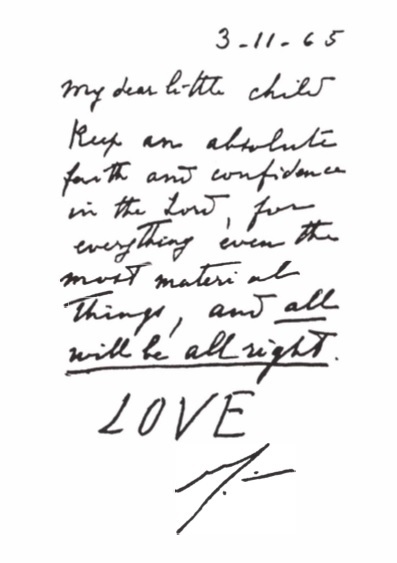 3-11-65
My dear little child
Keep an absolute
faith and confidence
in the Lord, for
everything even the
most material
things, and all
will be all right.
LOVE